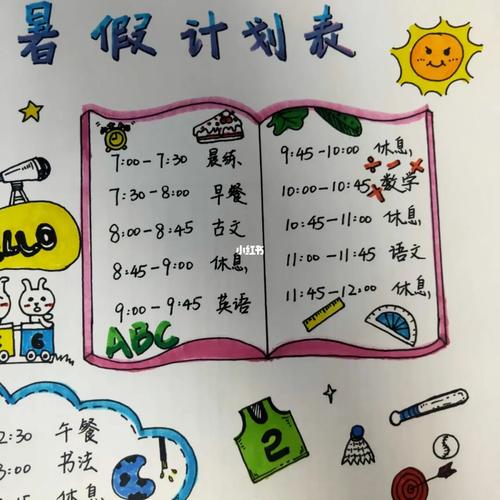 暑假计划表
7:00-7:30 晨练
7:30-8:00 早餐
8:00-8:45 古文
8:45-9:00 休息
9:00-9:45 英语
ABC
9:45-10:00 休息
10:00-10:45 数学
10:45-11:00 休息
11:00-11:45 语文
11:45-12:00 休息
小红书
LLO
6
2:30 午餐
3:00 书法
休息
2